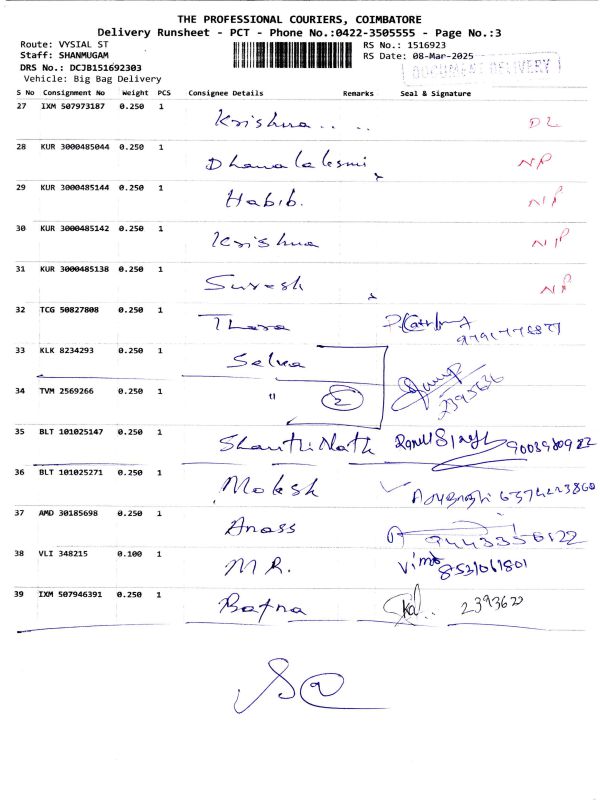 THE PROFESSIONAL COURIERS, COIMBATORE
Delivery Runsheet - PCT - Phone No.:0422-3505555 - Page No.:3
Route: VYSIAL ST
RS No.: 1516923
Staff: SHANMUGAM
RS Date: 08-Mar-2025
DRS No.: DCJB151692303
DOCUMENT DELIVERY
Vehicle: Big Bag Delivery
S No Consignment No Weight PCS Consignee Details Remarks Seal & Signature
27 IXM 507973187 0.250 1 Krishna.. .. DL
28 KUR 3000485044 0.250 1 Dhanalaksmi NP
29 KUR 3000485144 0.250 1 Habib. NP
30 KUR 3000485142 0.250 1 Krishna NP
31 KUR 3000485138 0.250 1 Suresh NP
32 TCG 50827808 0.250 1 Thara
33 KLK 8234293 0.250 1 Selva
34 TVM 2569266 0.250 1 " 2 2395636
35 BLT 101025147 0.250 1 Shanthi Nath
36 BLT 101025271 0.250 1 Mokesh 6374223860
37 AMD 30185698 0.250 1 Anass
38 VLI 348215 0.100 1 M R. 8531061801
39 IXM 507946391 0.250 1 Bafna 2393620